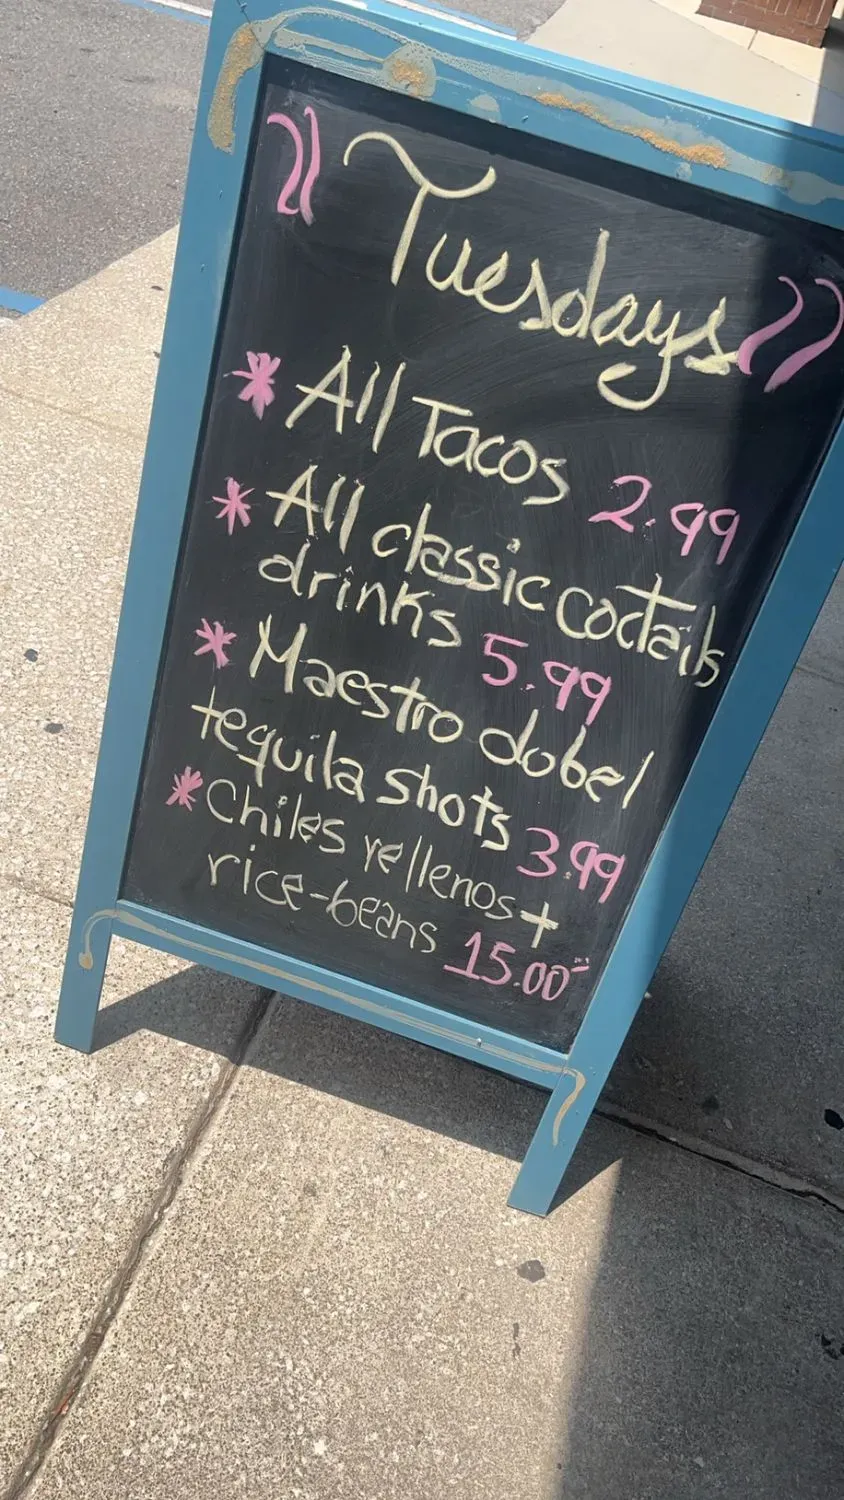 Tuesdays
* All Tacos 2.99
* All classic coctails
drinks 5.99
* Maestro dobel
tequila shots 3.99
* Chiles rellenos +
rice-beans 15.00